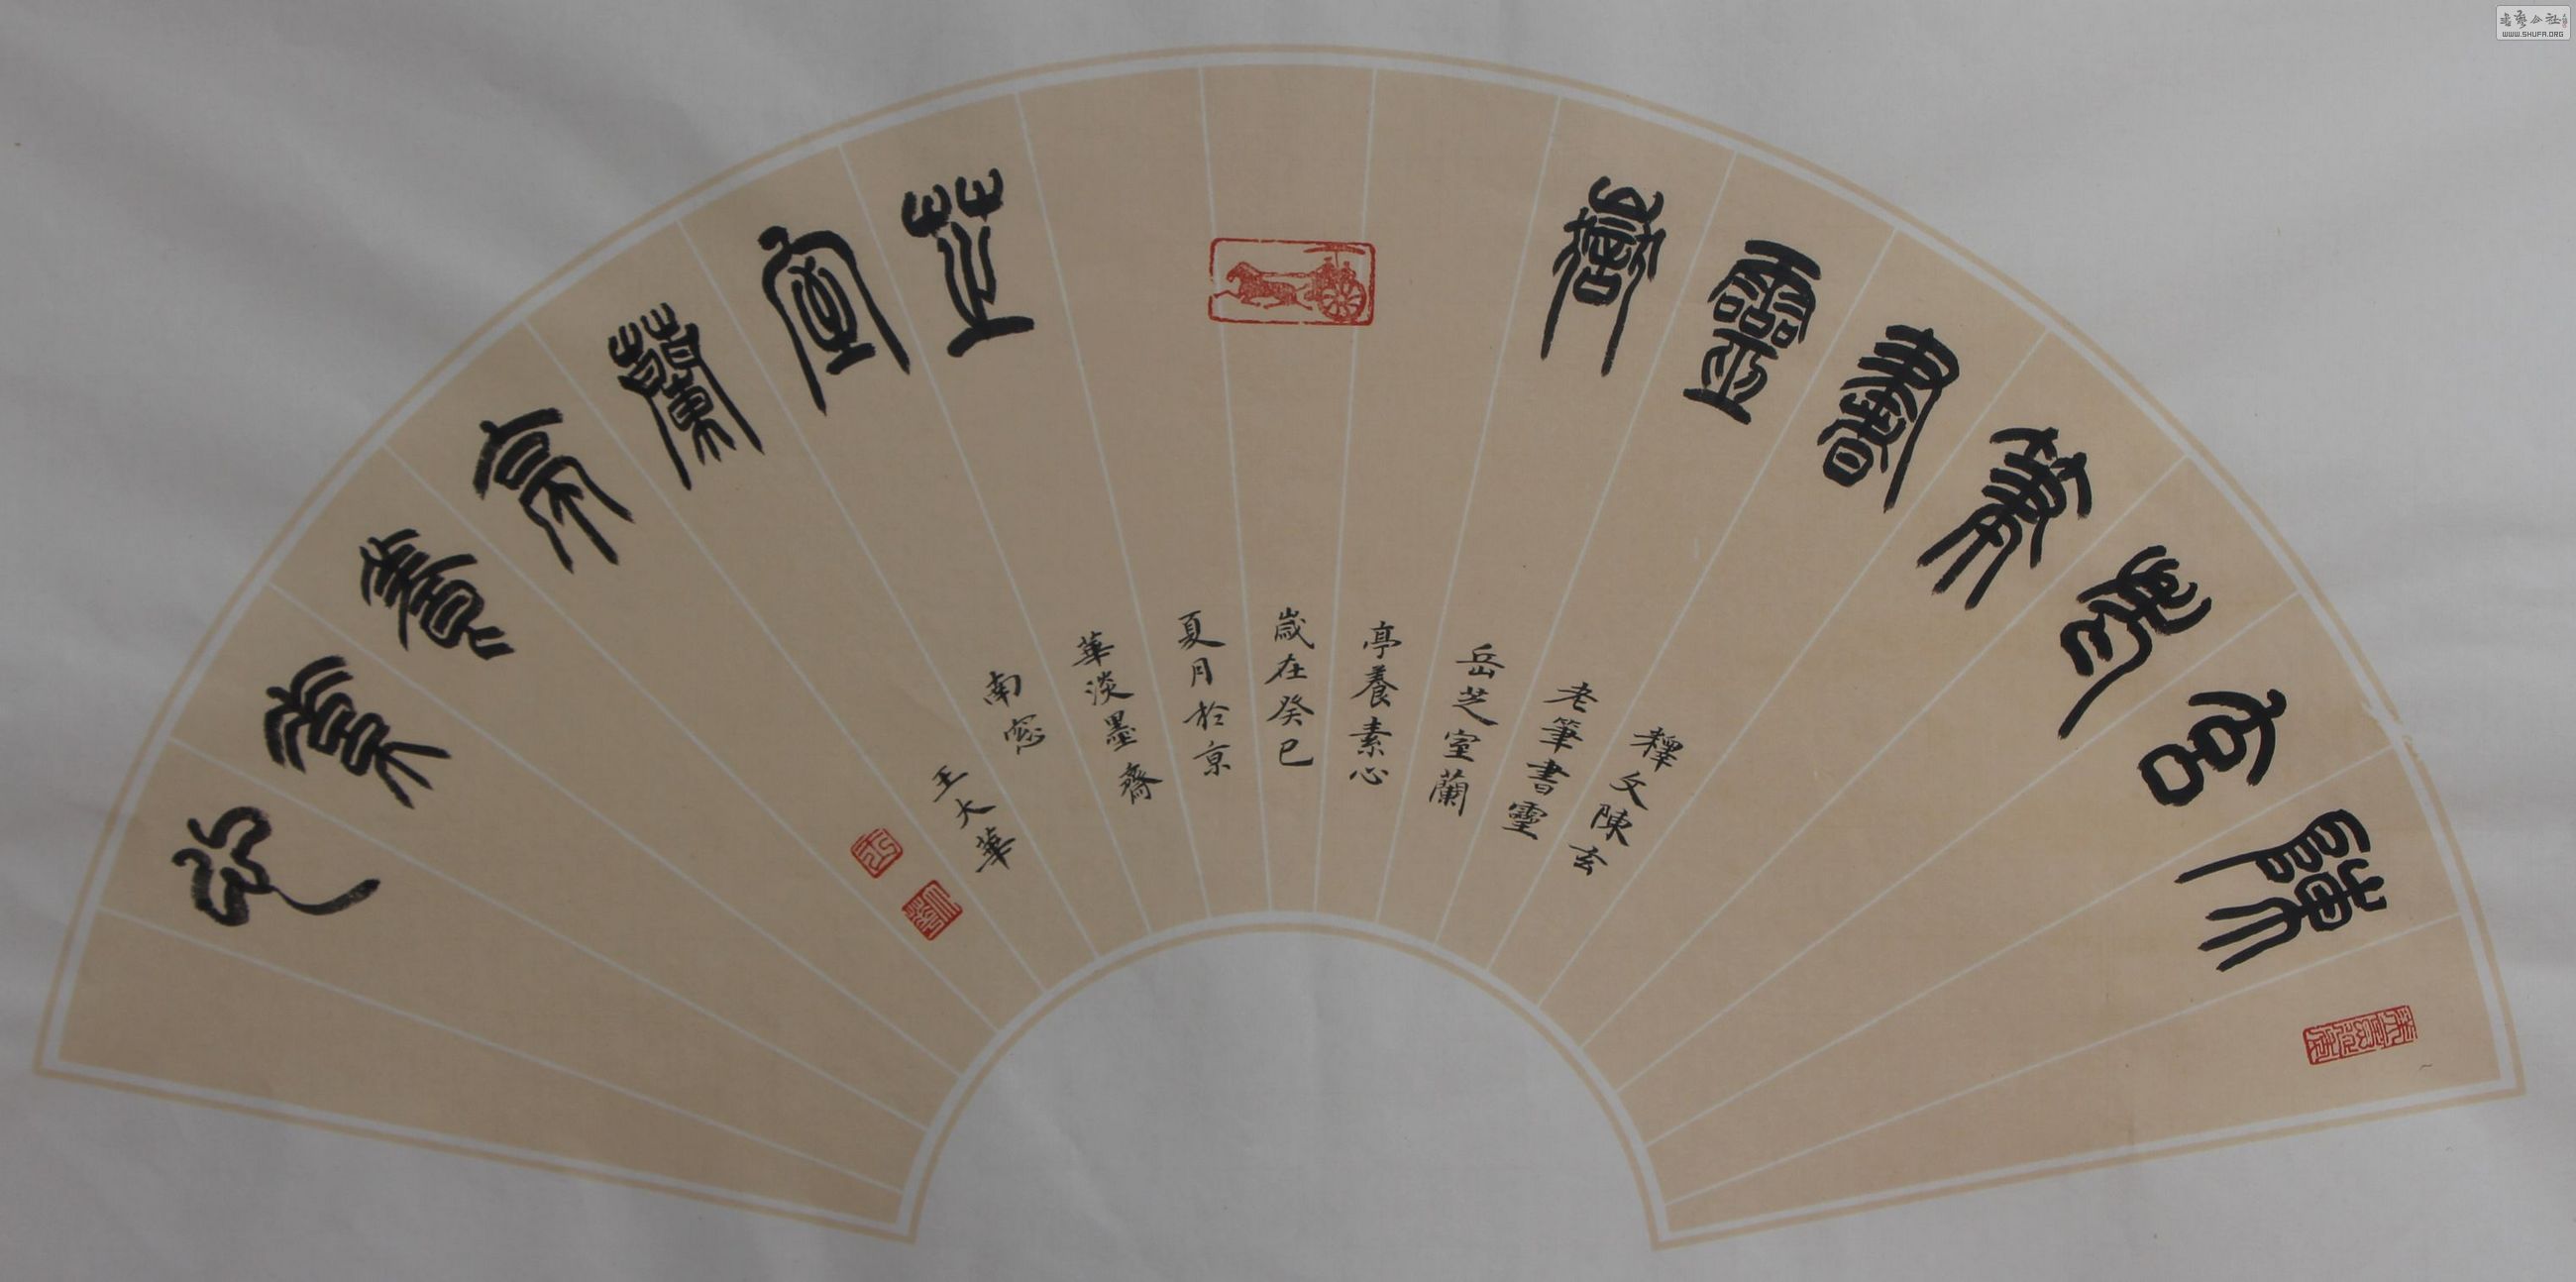 陳玄老筆書靈嶽
芝室蘭亭養素心
釋文陳玄
老筆書靈
岳芝室蘭
亭養素心
歲在癸巳
夏月於京
華淡墨齋
南窓
王大華
書藝公社
WWW.SHUFA.ORG